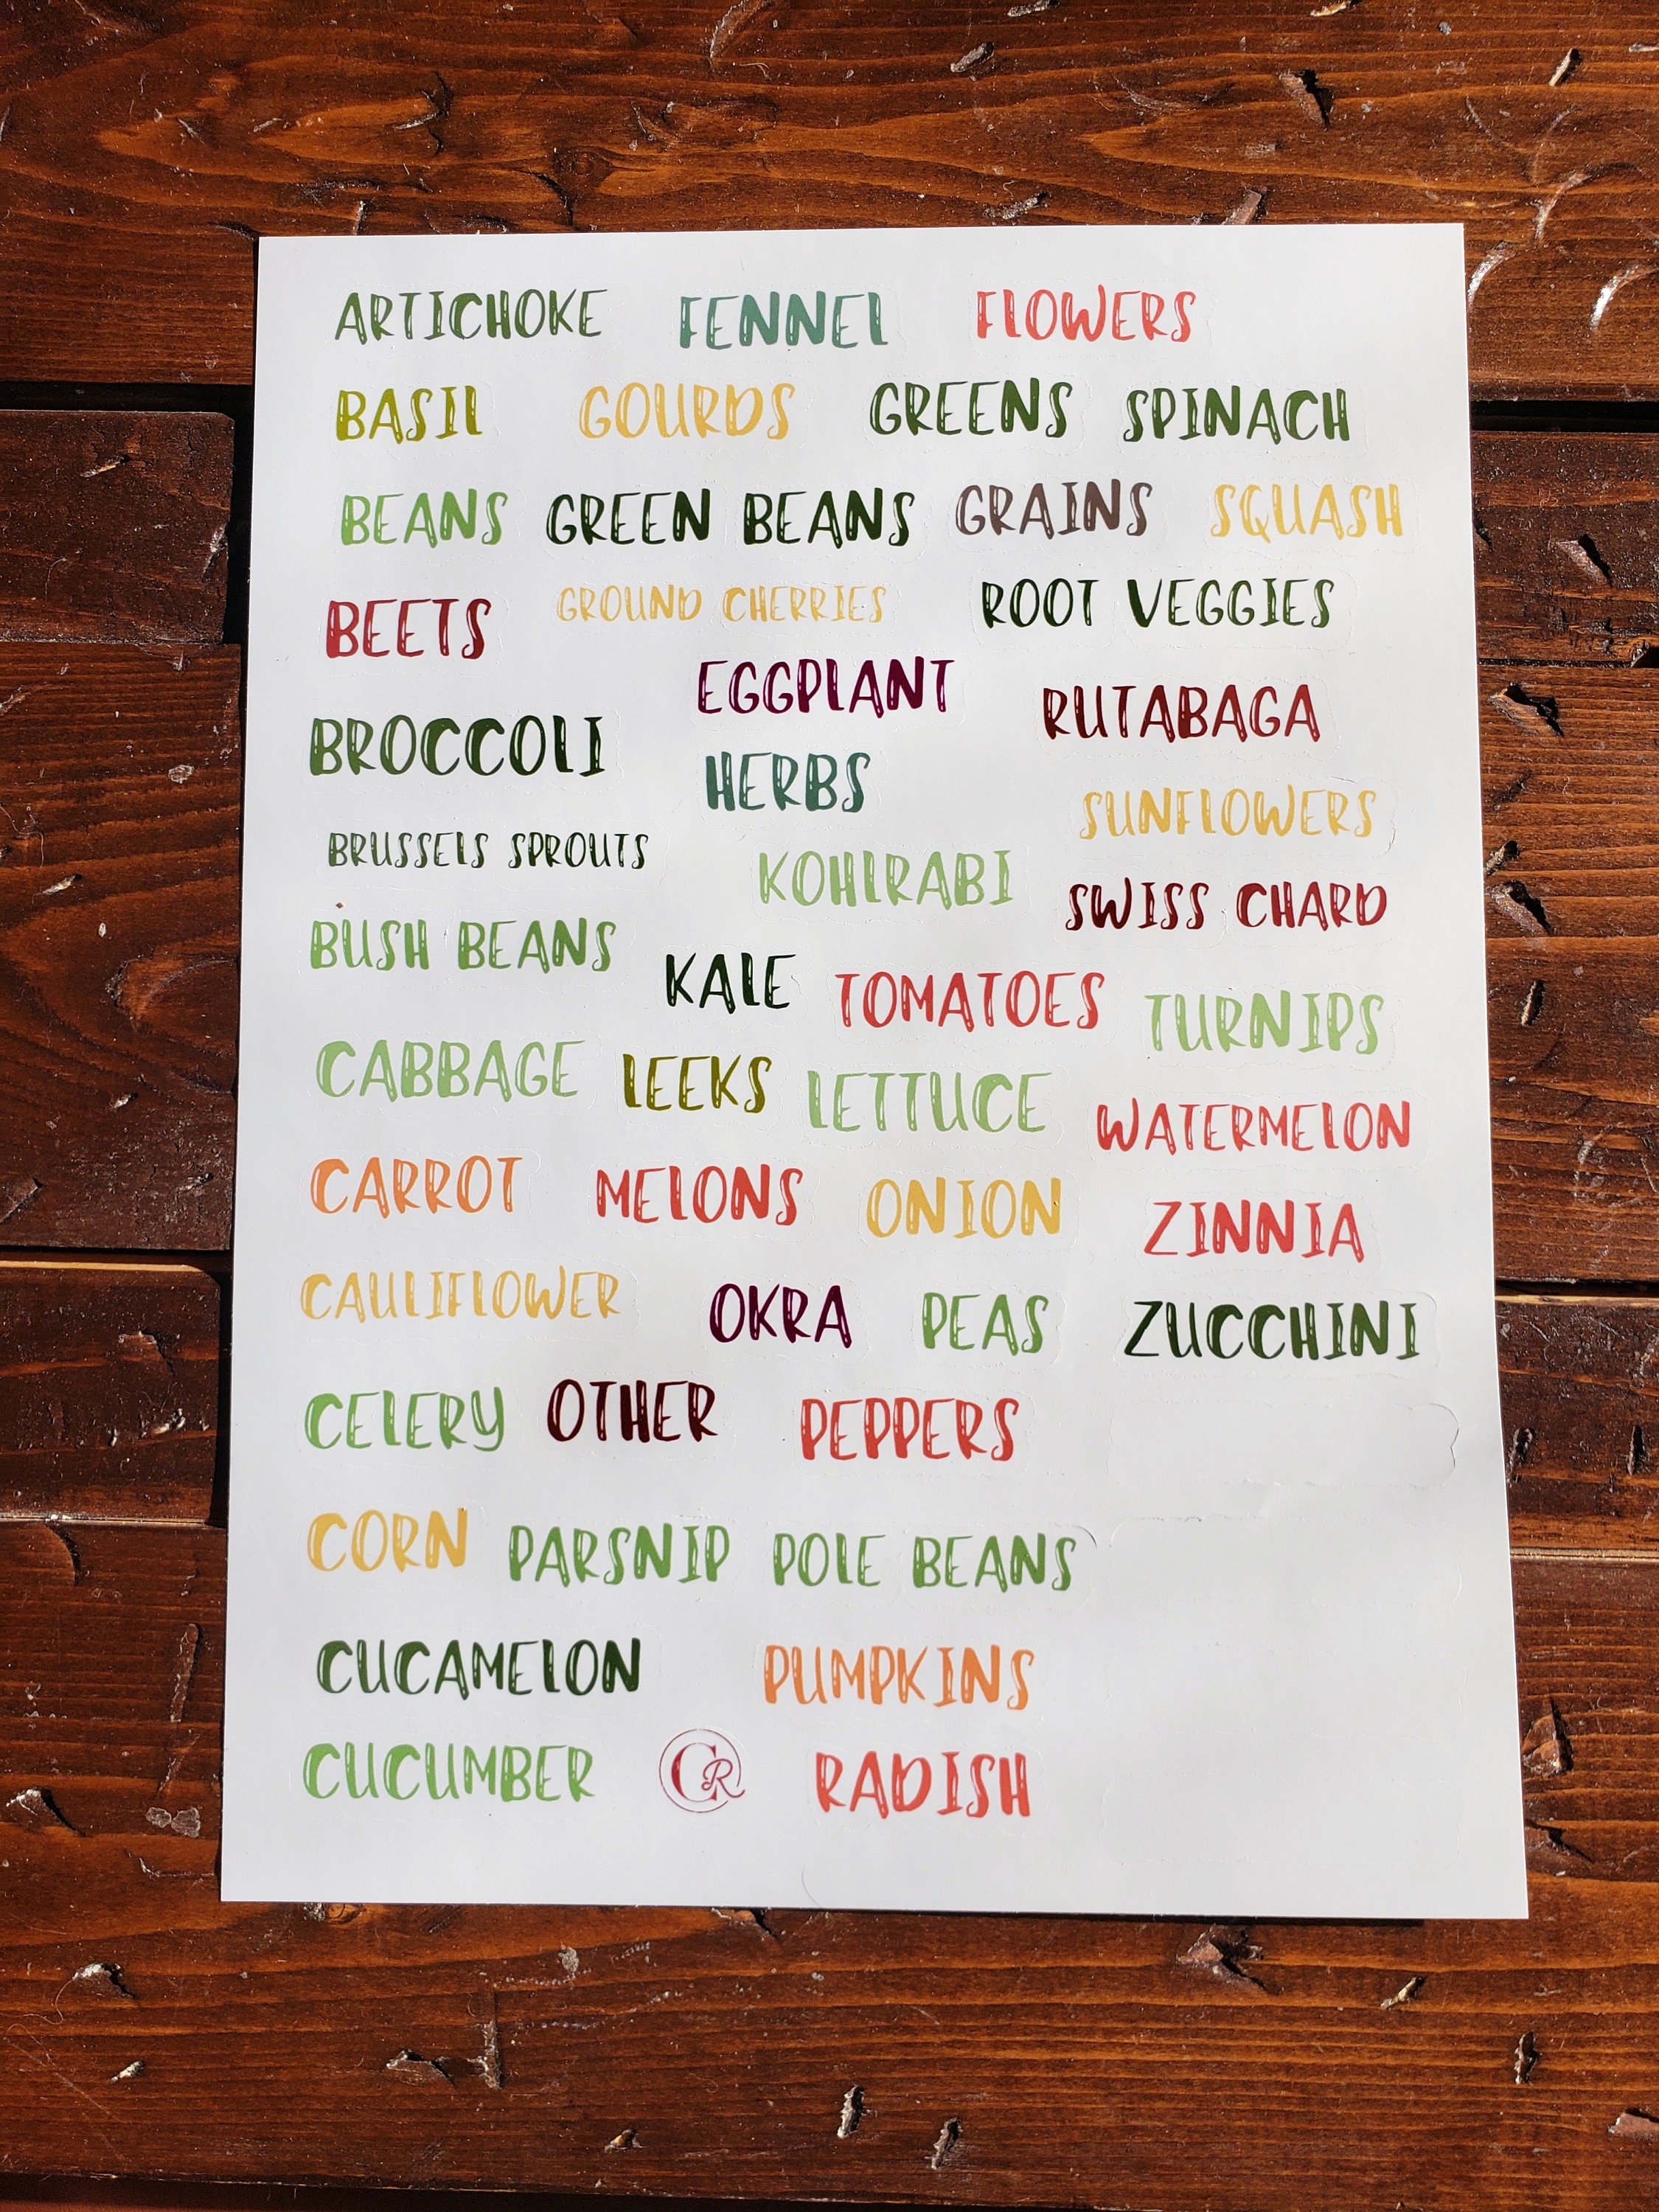 ARTICHOKE FENNEL FLOWERS
BASIL GOURDS GREENS SPINACH
BEANS GREEN BEANS GRAINS SQUASH
BEETS GROUND CHERRIES ROOT VEGGIES
EGGPLANT RUTABAGA
BROCCOLI HERBS
SUNFLOWERS
BRUSSELS SPROUTS KOHLRABI SWISS CHARD
BUSH BEANS KALE TOMATOES TURNIPS
CABBAGE LEEKS LETTUCE WATERMELON
CARROT MELONS ONION ZINNIA
CAULIFLOWER OKRA PEAS ZUCCHINI
CELERY OTHER PEPPERS
CORN PARSNIP POLE BEANS
CUCAMELON PUMPKINS
CUCUMBER CR RADISH